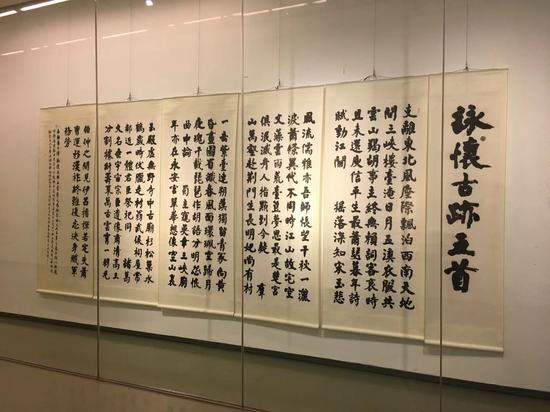 詠懷古跡五首
支離東北風塵際飄泊西南天地
間三峽樓臺淹日月五溪衣服共
雲山羯胡事主終無賴詞客哀時
且未還庾信平生最蕭瑟暮年詩
賦動江關 搖落深知宋玉悲
風流儒雅亦吾師悵望千秋一灑
淚蕭條異代不同時江山故宅空
文藻雲雨荒臺豈夢思最是楚宮
俱泯滅舟人指點到今疑 群
山萬壑赴荊門生長明妃尚有村
一去紫臺連朔漠獨留青冢向黃
昏畫圖省識春風面環珮空歸月
夜魂千載琵琶作胡語分明怨恨
曲中論 蜀主窺吳幸三峽崩
年亦在永安宮翠華想像空山裏
玉殿虛無野寺中古廟杉松巢水
鶴歲時伏臘走村翁武侯祠屋常
鄰近一體君臣祭祀同 諸葛
大名垂宇宙宗臣遺像肅清高三
分割據紆籌策萬古雲霄一羽毛
伯仲之間見伊呂指揮若定失蕭
曹運移漢祚終難復志決身殲軍
務勞